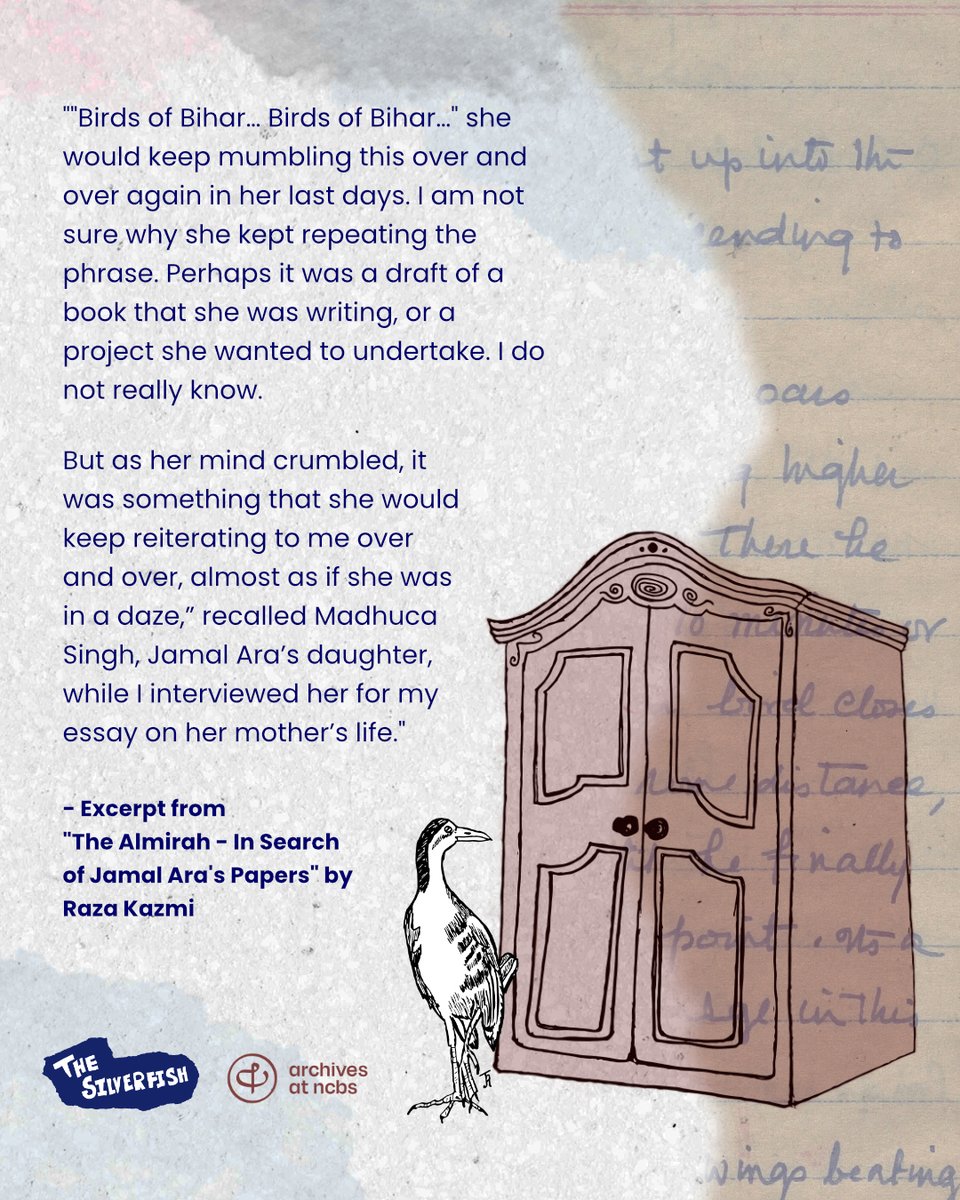 ""Birds of Bihar... Birds of Bihar..." she
would keep mumbling this over and
over again in her last days. I am not
sure why she kept repeating the
phrase. Perhaps it was a draft of a
book that she was writing, or a
project she wanted to undertake. I do
not really know.
But as her mind crumbled, it
was something that she would
keep reiterating to me over
and over, almost as if she was
in a daze,” recalled Madhuca
Singh, Jamal Ara’s daughter,
while I interviewed her for my
essay on her mother’s life."
- Excerpt from
"The Almirah - In Search
of Jamal Ara's Papers" by
Raza Kazmi
THE
SILVERFISH
archives
at ncbs
t up into the
ending to
oars
higher
There he
10 minutes or
bird closes
some distance,
he finally
point. Its a
in this
wings beating